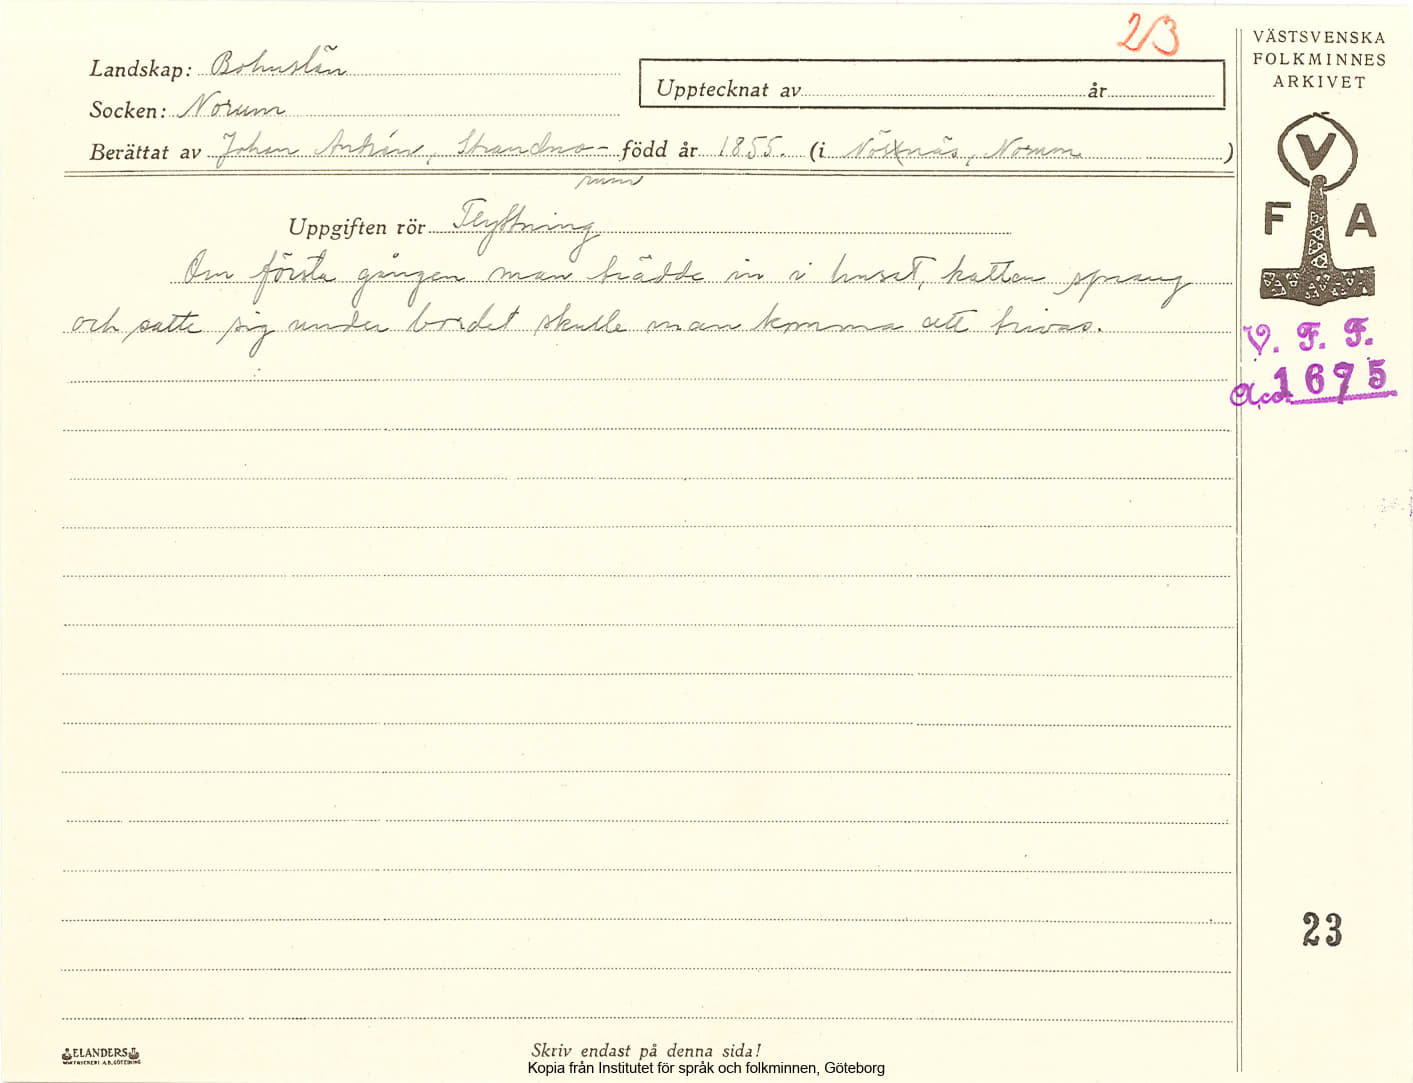 2/3
VÄSTSVENSKA
FOLKMINNES
ARKIVET
Landskap: Bohuslän
Upptecknat av år
Socken: Norum
Berättat av Johan Antrén, Strandno- född år 1855. (i Nösnäs, Norum )
rum
Uppgiften rör Flyttning
Om första gången man trädde in i huset, katten sprang
och satte sig under bordet skulle man komma att trivas.
V
F A
V. F. F.
Acc. 1675
23
ELANDERS
Skriv endast på denna sida!
Kopia från Institutet för språk och folkminnen, Göteborg